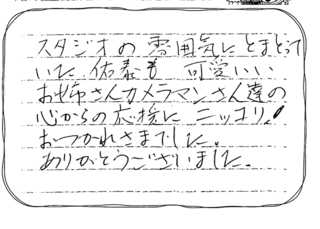 スタジオの雰囲気にとまどって
いた佑泰も 可愛いい
お姉さんカメラマンさん達の
心からの応援に ニッコリ!
おつかれさまでした。
ありがとうございました。